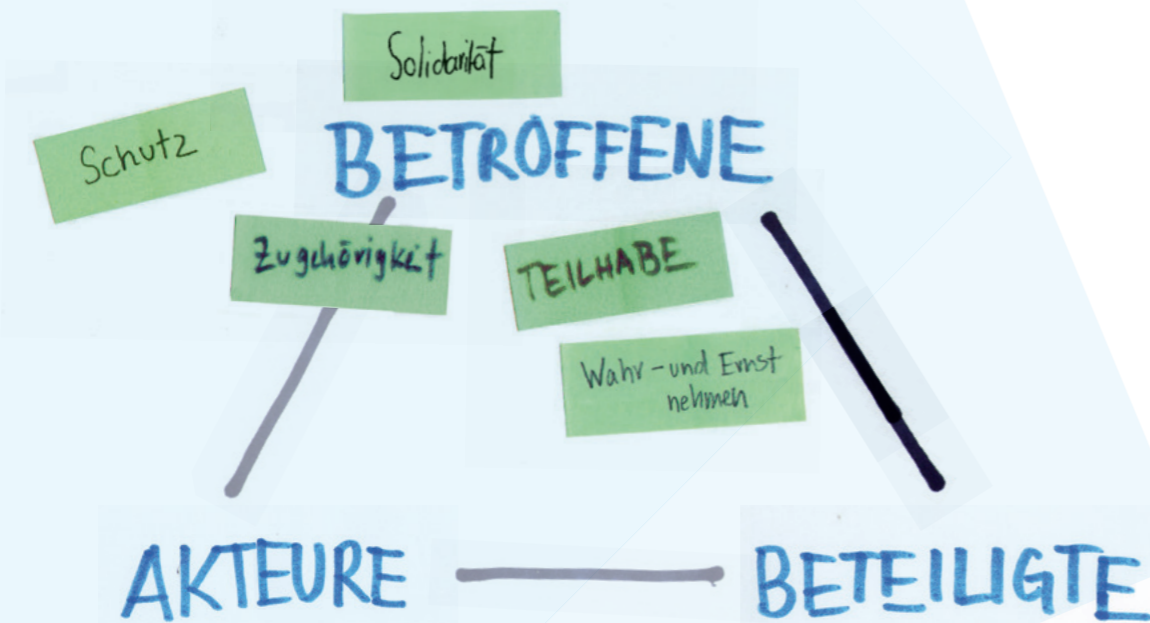 Solidarität
Schutz
BETROFFENE
Zugehörigkeit
TEILHABE
Wahr-und Ernst
nehmen
AKTEURE
BETEILIGTE